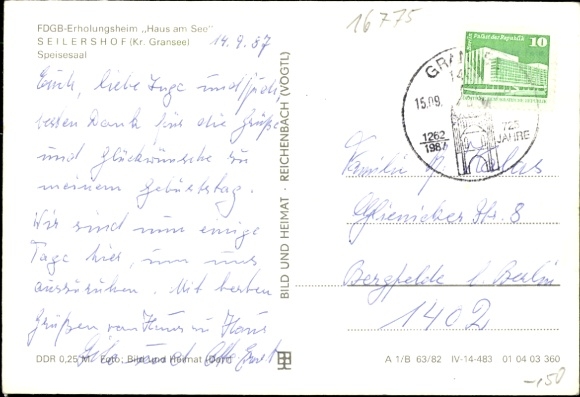 FDGB-Erholungsheim „Haus am See"
SEILERSHOF (Kr. Gransee)
Speisesaal
14.9.87
Euch, liebe Inga und
besten Dank für die Grüße
und Glückwünsche zu
meinem Geburtstag.
Wir sind nun einige
Tage hier, um uns
auszuruhen. Mit besten
Grüßen von Haus zu Haus
und
DDR 0,25 M Foto: Bild und Heimat
BILD UND HEIMAT · REICHENBACH (VOGTL)
16775
10
15.09.
1262
1987
725
JAHRE
Familie
Glienicker Str. 8
Bergfelde b. Berlin
1402
A 1/B 63/82 IV-14-483 01 04 03 360
-,50